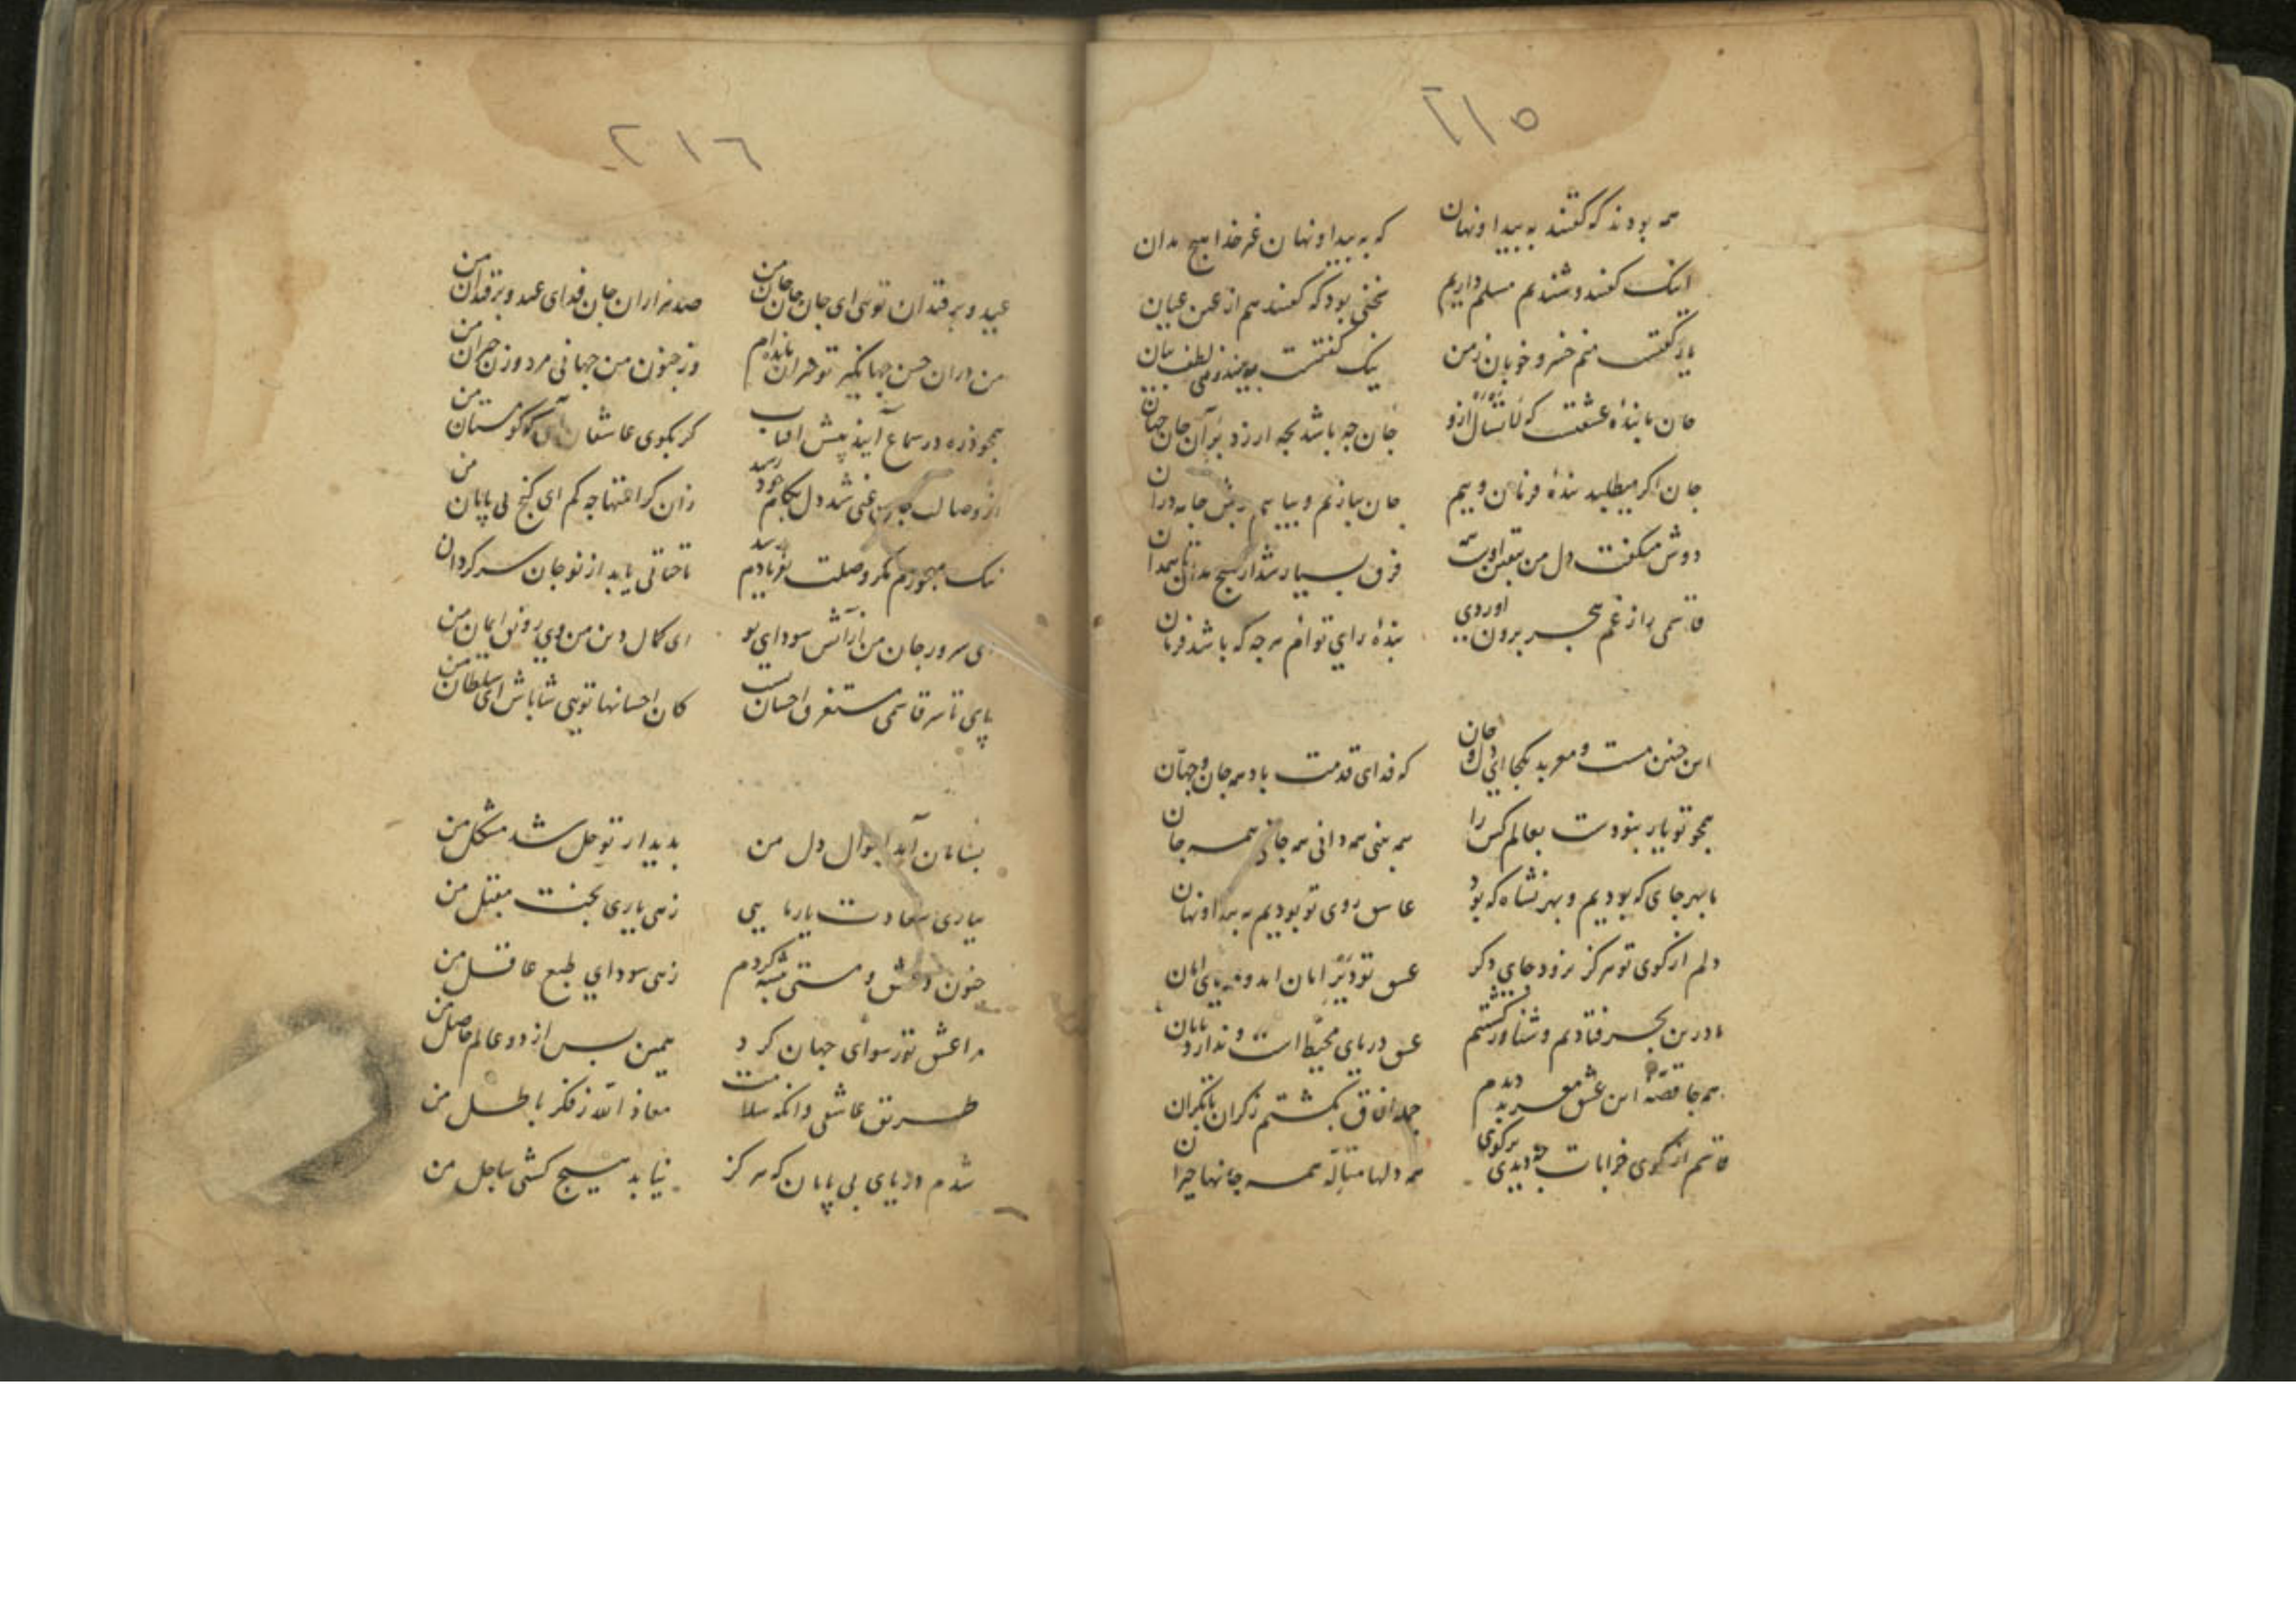 ۲۱۵
همه بودند که گفتند به پیدا و نهان
که به پیدا و نهان غیر خدا هیچ مدان
اینک گفتند و شنیدیم مسلم داریم
سخنی بود که گفتند هم از عین عیان
یار گفتست منم خسرو خوبان زمن
نیک گفتست ببینید زهی لطف بیان
جان ما بندهٔ عشقست که
جان چه باشد بچه ارزد بر آن جان جهان
جان اگر میطلبد بندهٔ فرمان وییم
جان ببازیم و بیاییم
دوش میگفت دل من بیقین اوست همه
فرق بسیار شد از هیچ مدان تا همه دان
قاسمی را ز غم هجر برون اوردی
بندهٔ رای توام هر چه که باشد فرمان
این چنین مست و معربد بکجایی دل و جان
که فدای قدمت باد همه جان و جهان
همچو تو یار نبودست بعالم کس را
همه بینی همه دانی همه جانی همه جان
ما بهر جای که بودیم و بهر نشاه که بود
عاشق روی تو بودیم به پیدا و نهان
دلم از کوی تو هرگز نرود جای دگر
عشق تو دیر امان امد و
ما درین بحر فتادیم و شناور گشتیم
عشق دریای محیط است و ندارد پایان
همه جا قصهٔ این عشق معربد دیدم
جمله آفاق بگشتم ز کران تا بکران
قاسم از کوی خرابات چه دیدی برگوی
همه دلها متاله همه جانها حیران
۲۱۶
عید و برقندان تویی ای جان جان جان من
صد هزاران جان فدای عید و برقندان من
من در ان حسن جهانگیر تو حیران مانده ام
وز جنون من جهانی مرد و زن حیران من
همچو ذره در سماع آیند پیش افتاب
گر بکوی عاشقان مستان من
از وصالت غنی شد دل بکام خود رسید
زان کرامتها چه کم ای گنج بی پایان من
نیک مهجورم مگر وصلت بفریادم رسد
تا حیاتی یابد از نو جان سرگردان من
ای سرور جان من از آتش سودای تو
ای کمال دین من وی رونق ایمان من
پای تا سر قاسمی مستغرق احسان تست
کان احسانها تویی شاباش ای سلطان من
بسامان آمد احوال دل من
بدیدار تو حل شد مشکل من
بیاری سعادت یار مایی
زهی یاری بخت مقبل من
جنون و عشق و مستی پیشه کردم
زهی سودای طبع عاقل من
مرا عشق تو رسوای جهان کرد
همین بس از دو عالم حاصل من
طریق عاشقی وانگه سلامت
معاذ الله ز فکر باطل من
شدم دریای بی پایان که هرگز
نیابد هیچ کشتی ساحل من